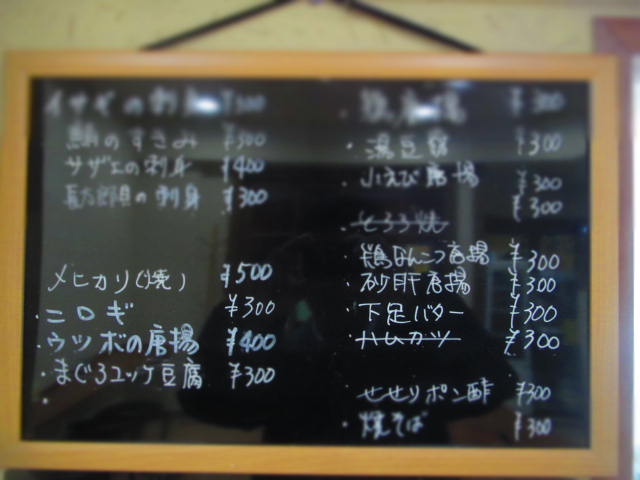 イサギの刺身 ¥500
鯛のすきみ ¥300
サザエの刺身 ¥400
長太郎貝の刺身 ¥300
メヒカリ(焼) ¥500
・ニロギ ¥300
・ウツボの唐揚 ¥400
・まぐろユッケ豆腐 ¥300
・
¥300
・湯豆腐 ¥300
・小えび唐揚 ¥300
・とろろ焼 ¥300
・鶏なんこつ唐揚 ¥300
・砂肝唐揚 ¥300
・下足バター ¥300
・ハムカツ ¥300
・せせりポン酢 ¥300
・焼そば ¥300